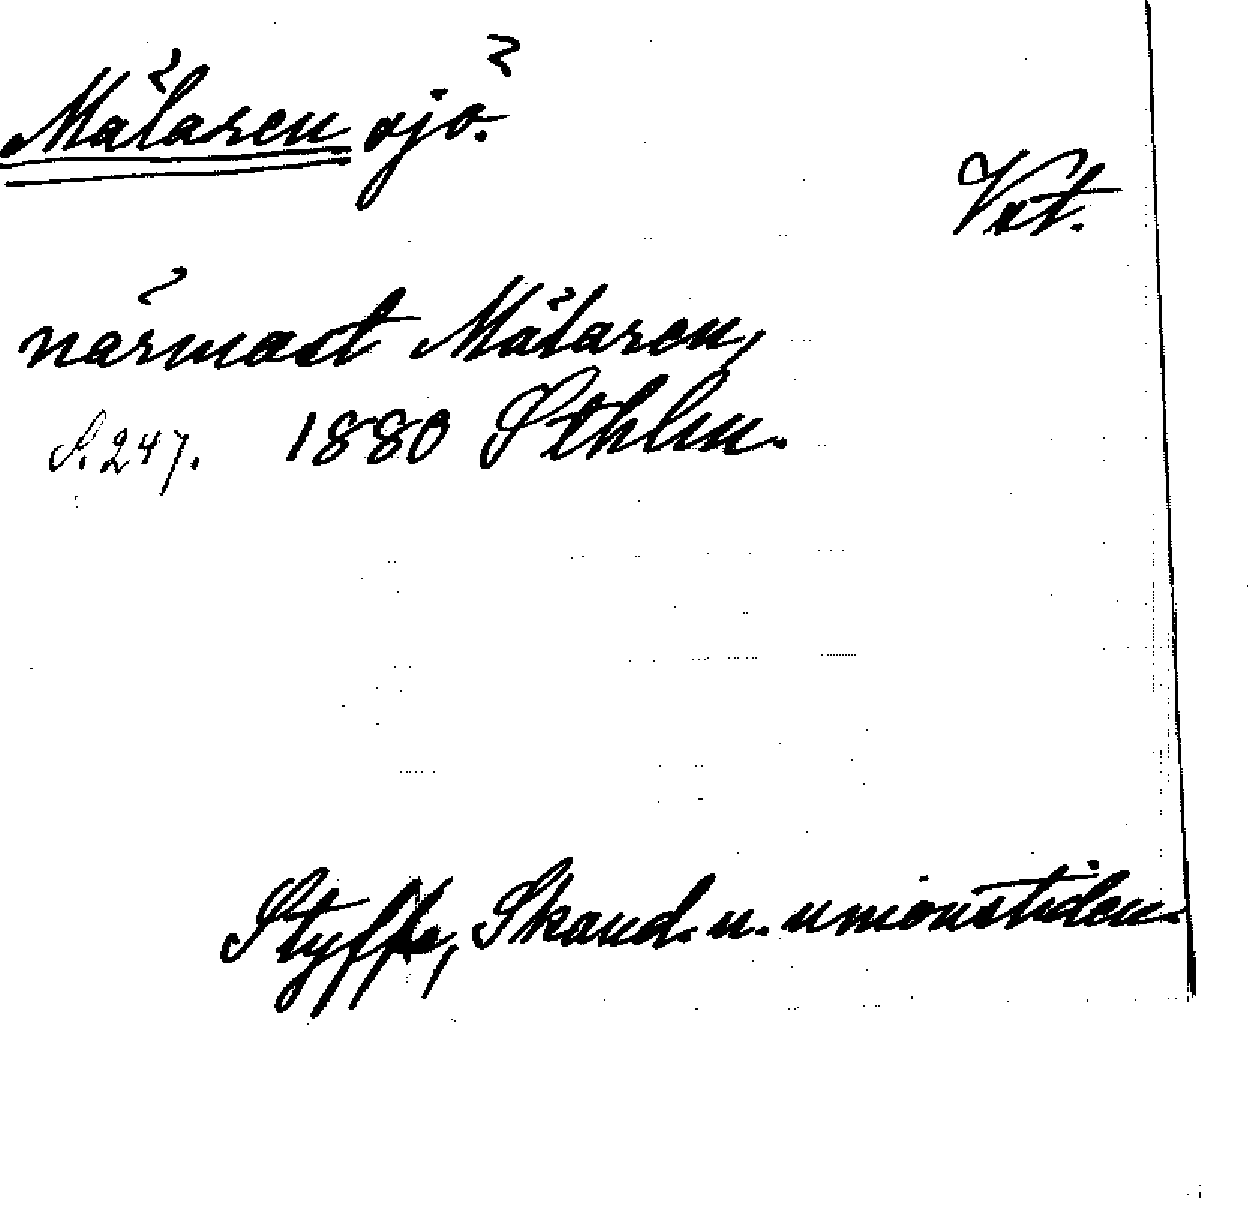 Mälaren sjö.
Vst.
närmast Mälaren,
S. 247. 1880 Sthlm.
Styffe, Skand. u. unionstiden.